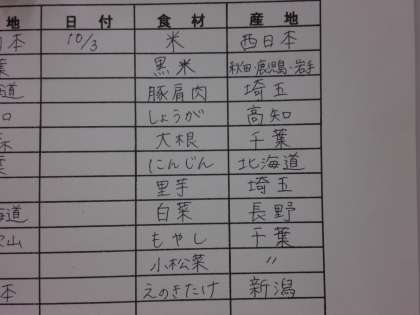 地 日付 食材 産地
本 10/3 米 西日本
葉 黒米 秋田・鹿児島・岩手
道 豚肩肉 埼玉
口 しょうが 高知
大根 千葉
葉 にんじん 北海道
里芋 埼玉
海道 白菜 長野
山 もやし 千葉
小松菜 〃
本 えのきたけ 新潟